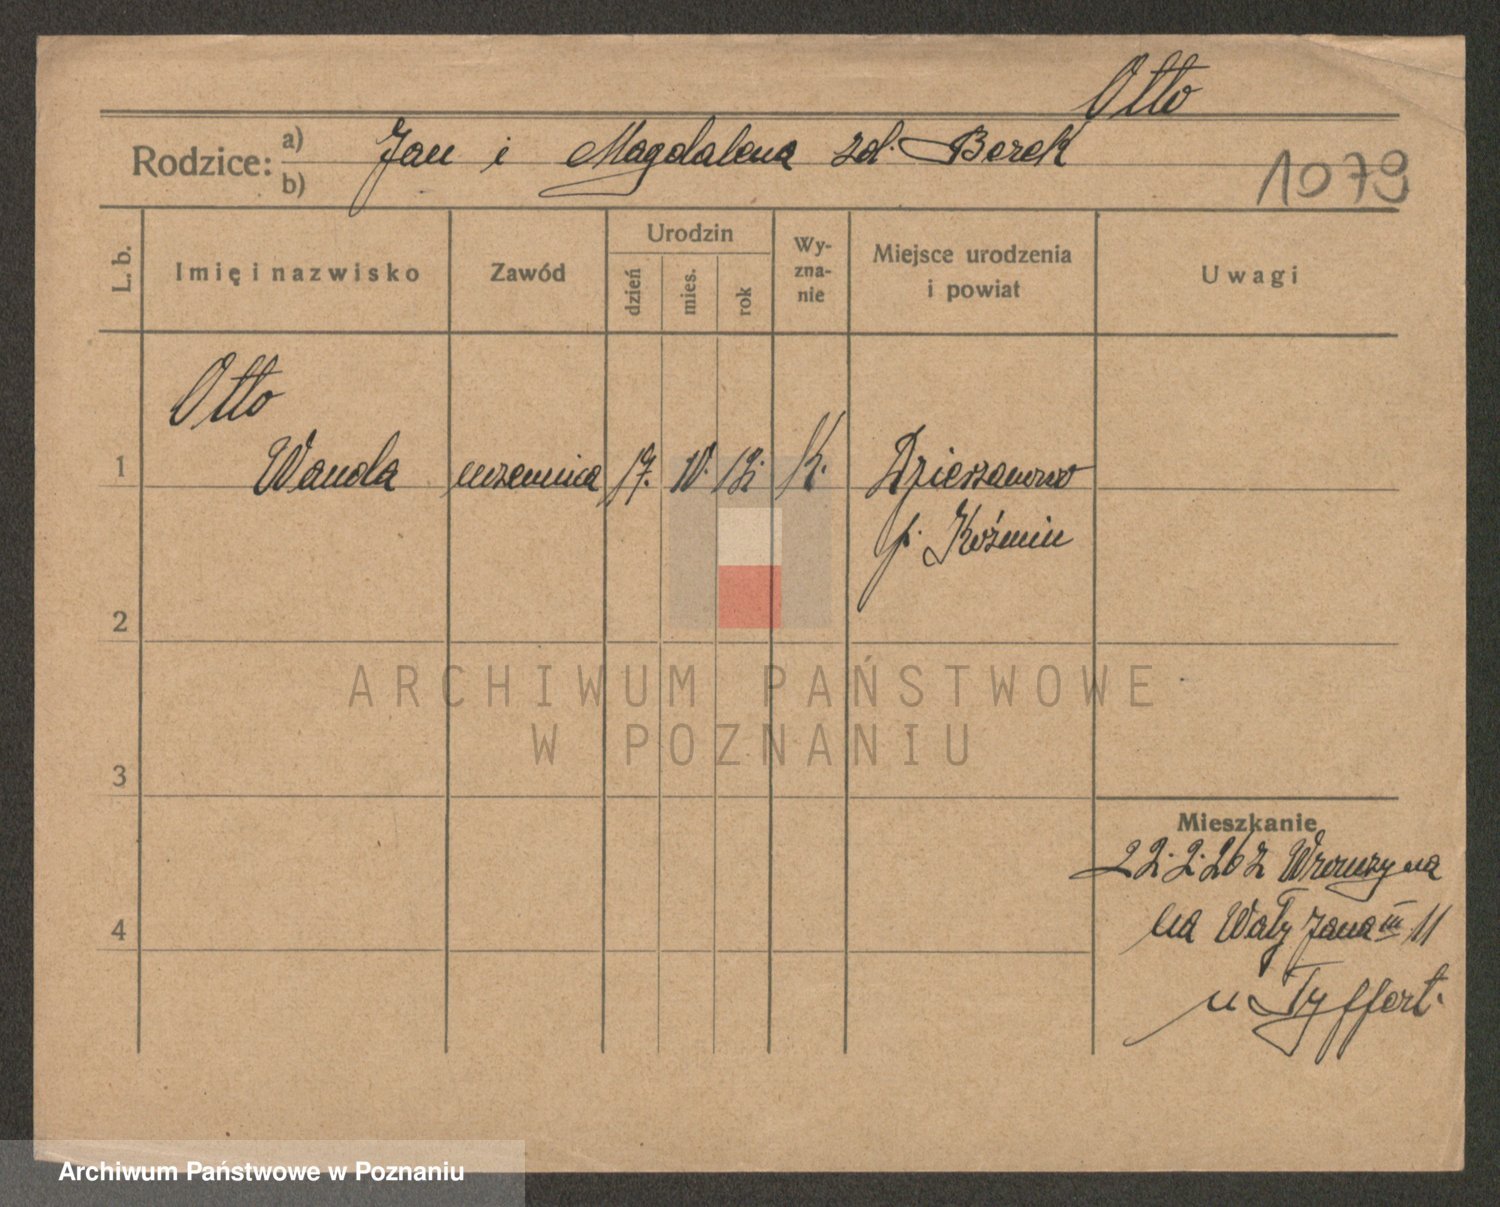 Otto
Rodzice: a) b) Jan i Magdalena zd. Borek
1079
L. b.
Imię i nazwisko
Zawód
Urodzin
dzień
mies.
rok
Wy-
zna-
nie
Miejsce urodzenia
i powiat
Uwagi
Otto
1 Wanda uczennica 17. IV. 12. K. Dzierzanowo
p. Koźmin
2
3
4
Mieszkanie
22.2.26 z
na Wały Jana III 11
u Tyffert.
ARCHIWUM PAŃSTWOWE
W POZNANIU
Archiwum Państwowe w Poznaniu